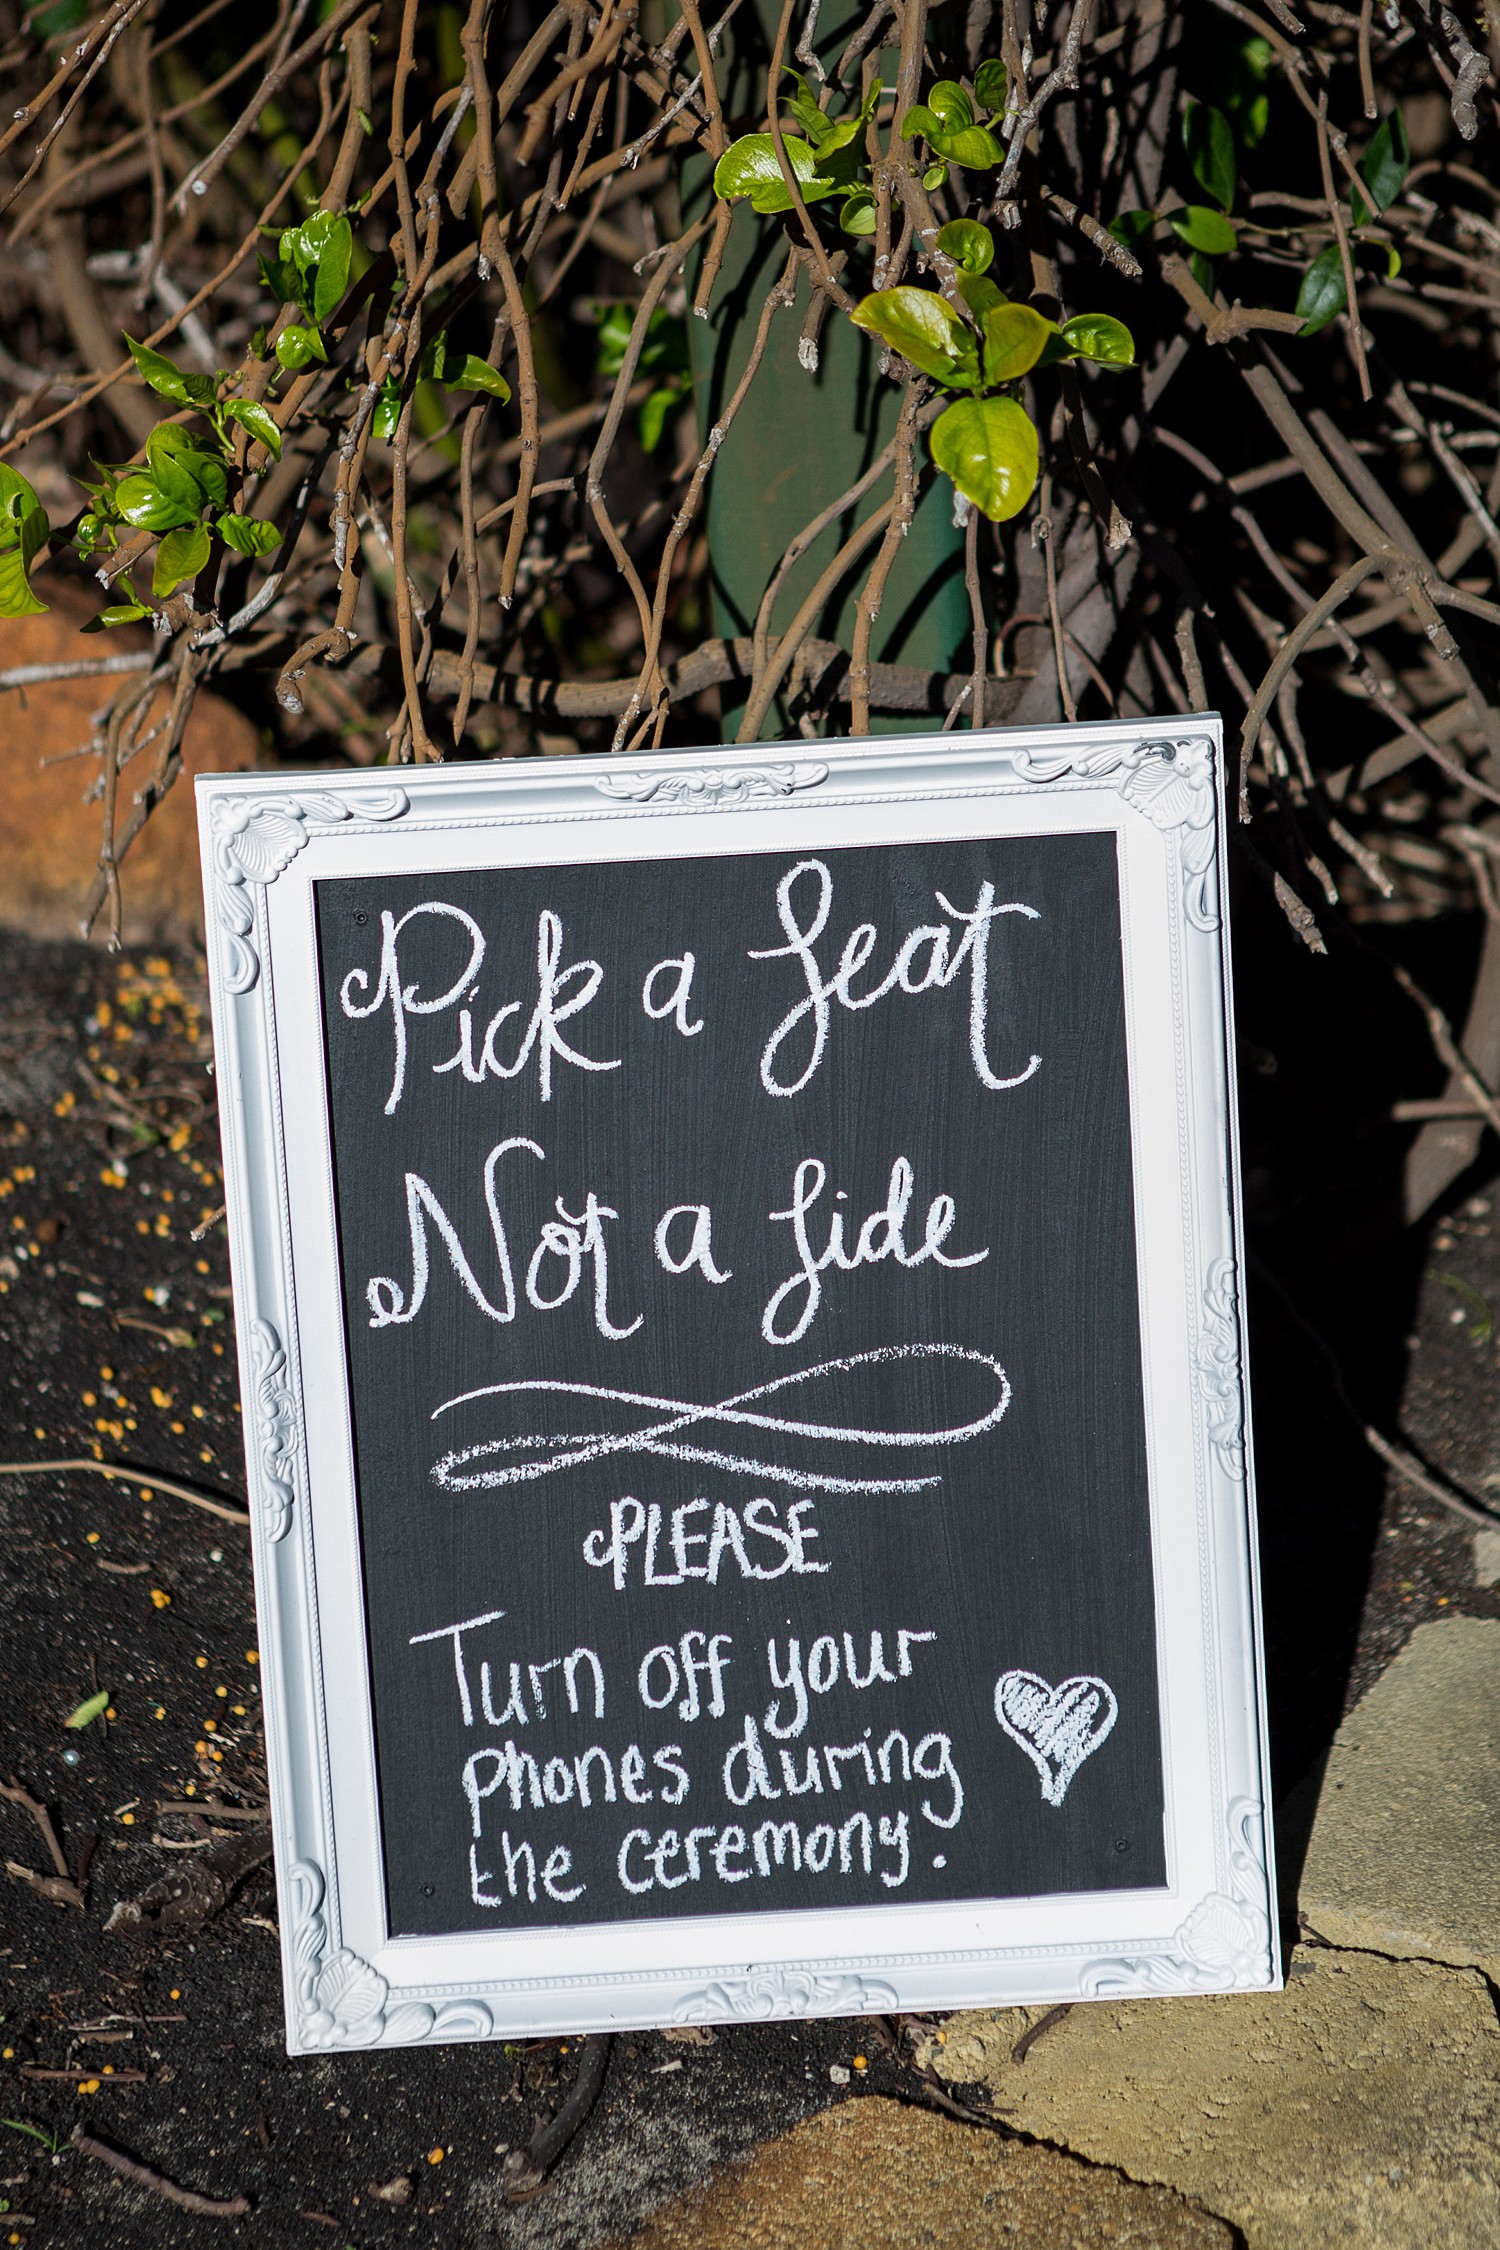 Pick a Seat
Not a Side
PLEASE
Turn off your
phones during
the ceremony.